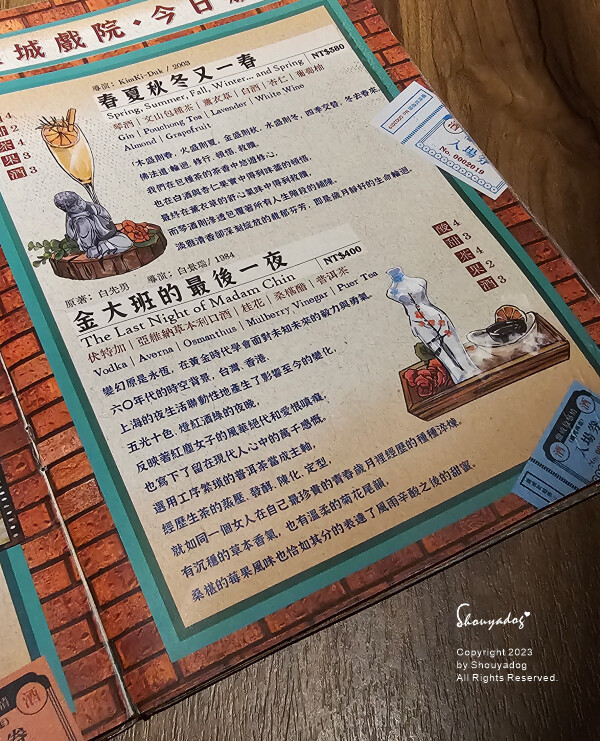 城戲院・今日
導演：KimKi-Duk / 2003
春夏秋冬又一春
NT$580
Spring, Summer, Fall, Winter... and Spring
琴酒 | 文山包種茶 | 薰衣草 | 白酒 | 杏仁 | 葡萄柚
Gin | Pouchong Tea | Lavender | White Wine
Almond | Grapefruit
木盛則春，火盛則夏，金盛則秋，水盛則冬，四季交替，冬去春來。
佛法道 輪迴，修行，頓悟，救贖，
我們在包種茶的茶香中悠遊修心，
也在白酒與杏仁果實中得到味蕾的頓悟，
最終在薰衣草的舒心氣味中得到救贖，
而琴酒則滲透包覆著所有人生階段的鋪陳，
淡雅清香卻深刻綻放的馥郁芬芳，即是歲月靜好的生命輪迴。
4
4
3
3
3
酒
酒
入場券
No. 0002019
原著：白先勇 導演：白景瑞 / 1984
金大班的最後一夜
NT$400
The Last Night of Madam Chin
伏特加 | 亞維納草本利口酒 | 桂花 | 桑椹醋 | 普洱茶
Vodka | Averna | Osmanthus | Mulberry Vinegar | Puer Tea
酸 4
甜 3
茶 4
果 2
酒 3
變幻原是永恆，在黃金時代學會面對未知未來的毅力與勇氣。
六〇年代的時空背景，台灣，香港，
上海的夜生活聯動性地產生了影響至今的變化，
五光十色，燈紅酒綠的夜晚，
反映著紅塵女子的風華絕代和愛恨嗔癡，
也寫下了留在現代人心中的萬千感慨。
選用工序繁瑣的普洱茶當成主軸，
經歷生茶的蒸壓，發酵，陳化，定型，
就如同一個女人在自己最珍貴的青春歲月裡經歷的種種淬煉，
有沉穩的草本香氣，也有溫柔的菊花尾韻，
桑椹的莓果風味也恰如其分的表達了風雨辛酸之後的甜蜜。
入場券
酒
Shouyadog
Copyright 2023
by Shouyadog
All Rights Reserved.